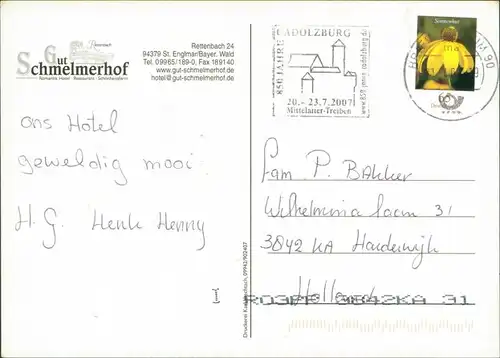 Gut
Schmelmerhof
Romantik Hotel · Restaurant · Schmiedgasthof
Rettenbach 24
94379 St. Englmar/Bayer. Wald
Tel. 09965/189-0, Fax 189140
www.gut-schmelmerhof.de
hotel@gut-schmelmerhof.de
850 JAHRE
CADOLZBURG
www.850-jahre-cadolzburg.de
20.- 23.7.2007
Mittelalter-Treiben
Sonnenhut
90
ons Hotel
geweldig mooi
H. G. Henk Henny
Fam P. Bakker
Wilhelmina laan 31
3842 KA Harderwijk
Holland
3842KA 31
09942/902407